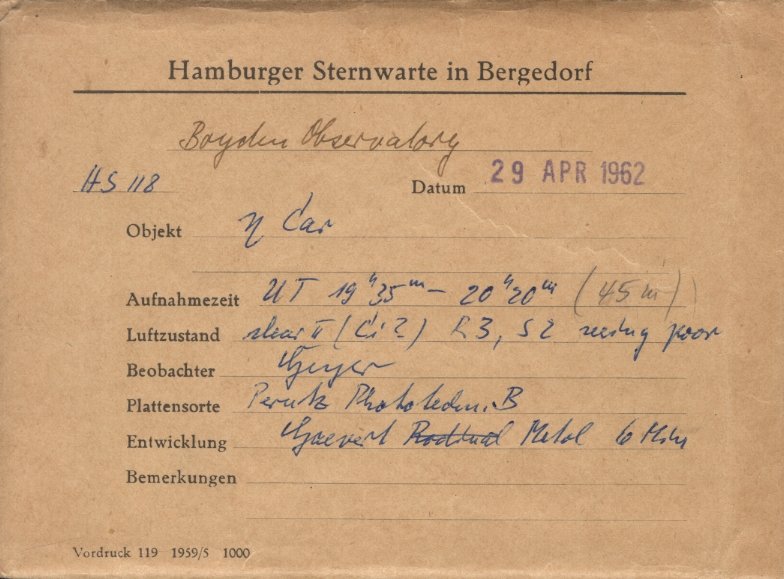 Hamburger Sternwarte in Bergedorf
Boyden Observatory
HS 118 Datum 29 APR 1962
Objekt η Car
Aufnahmezeit UT 19ʰ35ᵐ – 20ʰ20ᵐ (45 m)
Luftzustand clear II (Ci?) R3, S2 seeing poor
Beobachter Geyer
Plattensorte Perutz Phototechn. B
Entwicklung Gaevert Rodinal Metol 6 Min
Bemerkungen
Vordruck 119 1959/5 1000